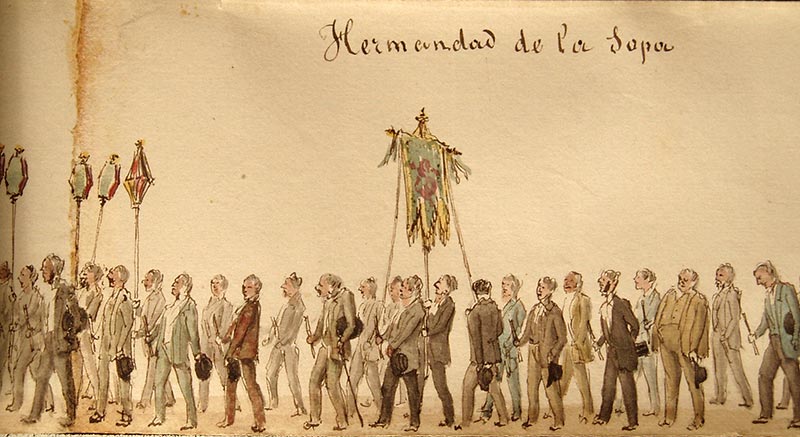 Hermandad de la Sopa
S